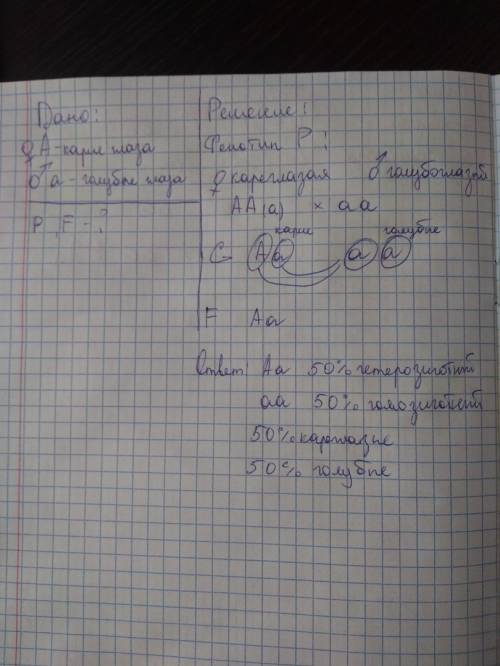 Дано:
♀ А - карие глаза
♂ а - голубые глаза
Р, F - ?
Решение:
Фенотип Р:
♀ кареглазая ♂ голубоглазый
АА(а) × аа
карие голубые
G А а а а
F Аа
Ответ: Аа 50% гетерозиготный
аа 50% гомозиготный
50% кареглазые
50% голубые